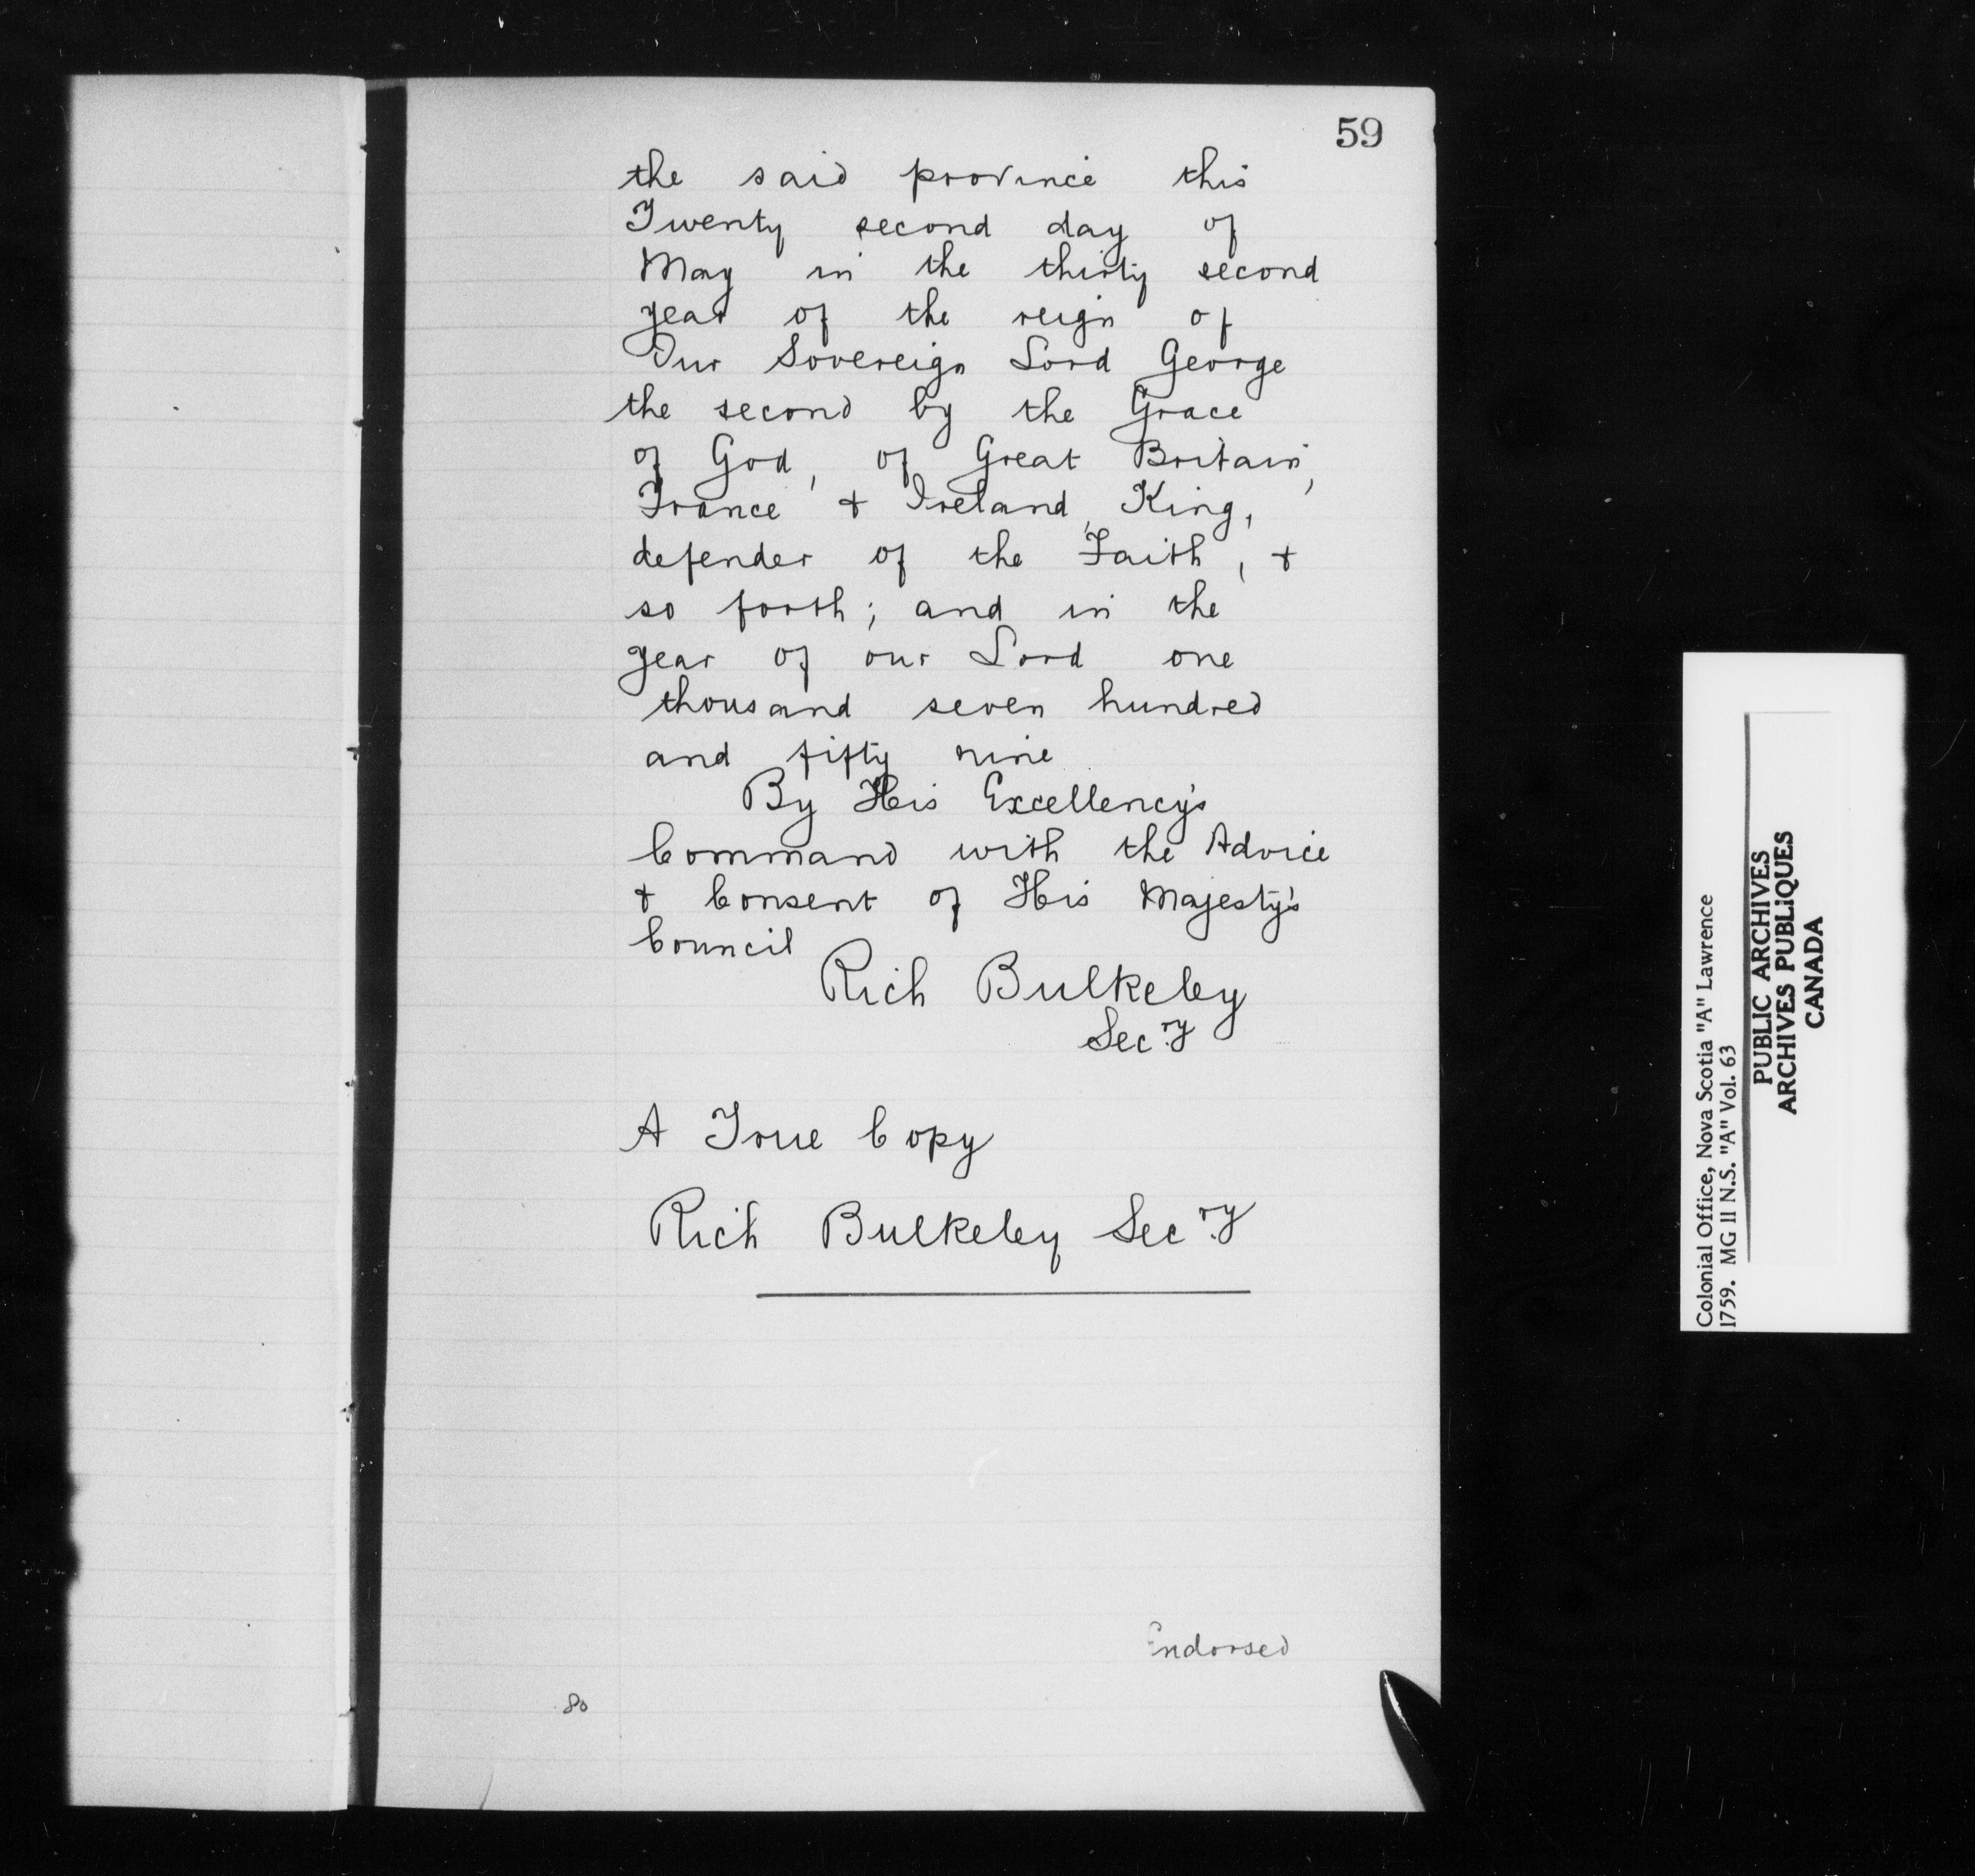 59
the said province this
Twenty second day of
May in the thirty second
year of the reign of
Our Sovereign Lord George
the second by the Grace
of God, of Great Britain,
France & Ireland, King,
defender of the Faith, &
so forth; and in the
year of our Lord one
thousand seven hundred
and fifty nine
By His Excellency's
Command with the Advice
& Consent of His Majesty's
Council
Rich Bulkeley
Secry
A True Copy
Rich Bulkeley Secry
Endorsed
80
Colonial Office, Nova Scotia "A" Lawrence
1759. MG 11 N.S. "A" Vol. 63
PUBLIC ARCHIVES
ARCHIVES PUBLIQUES
CANADA